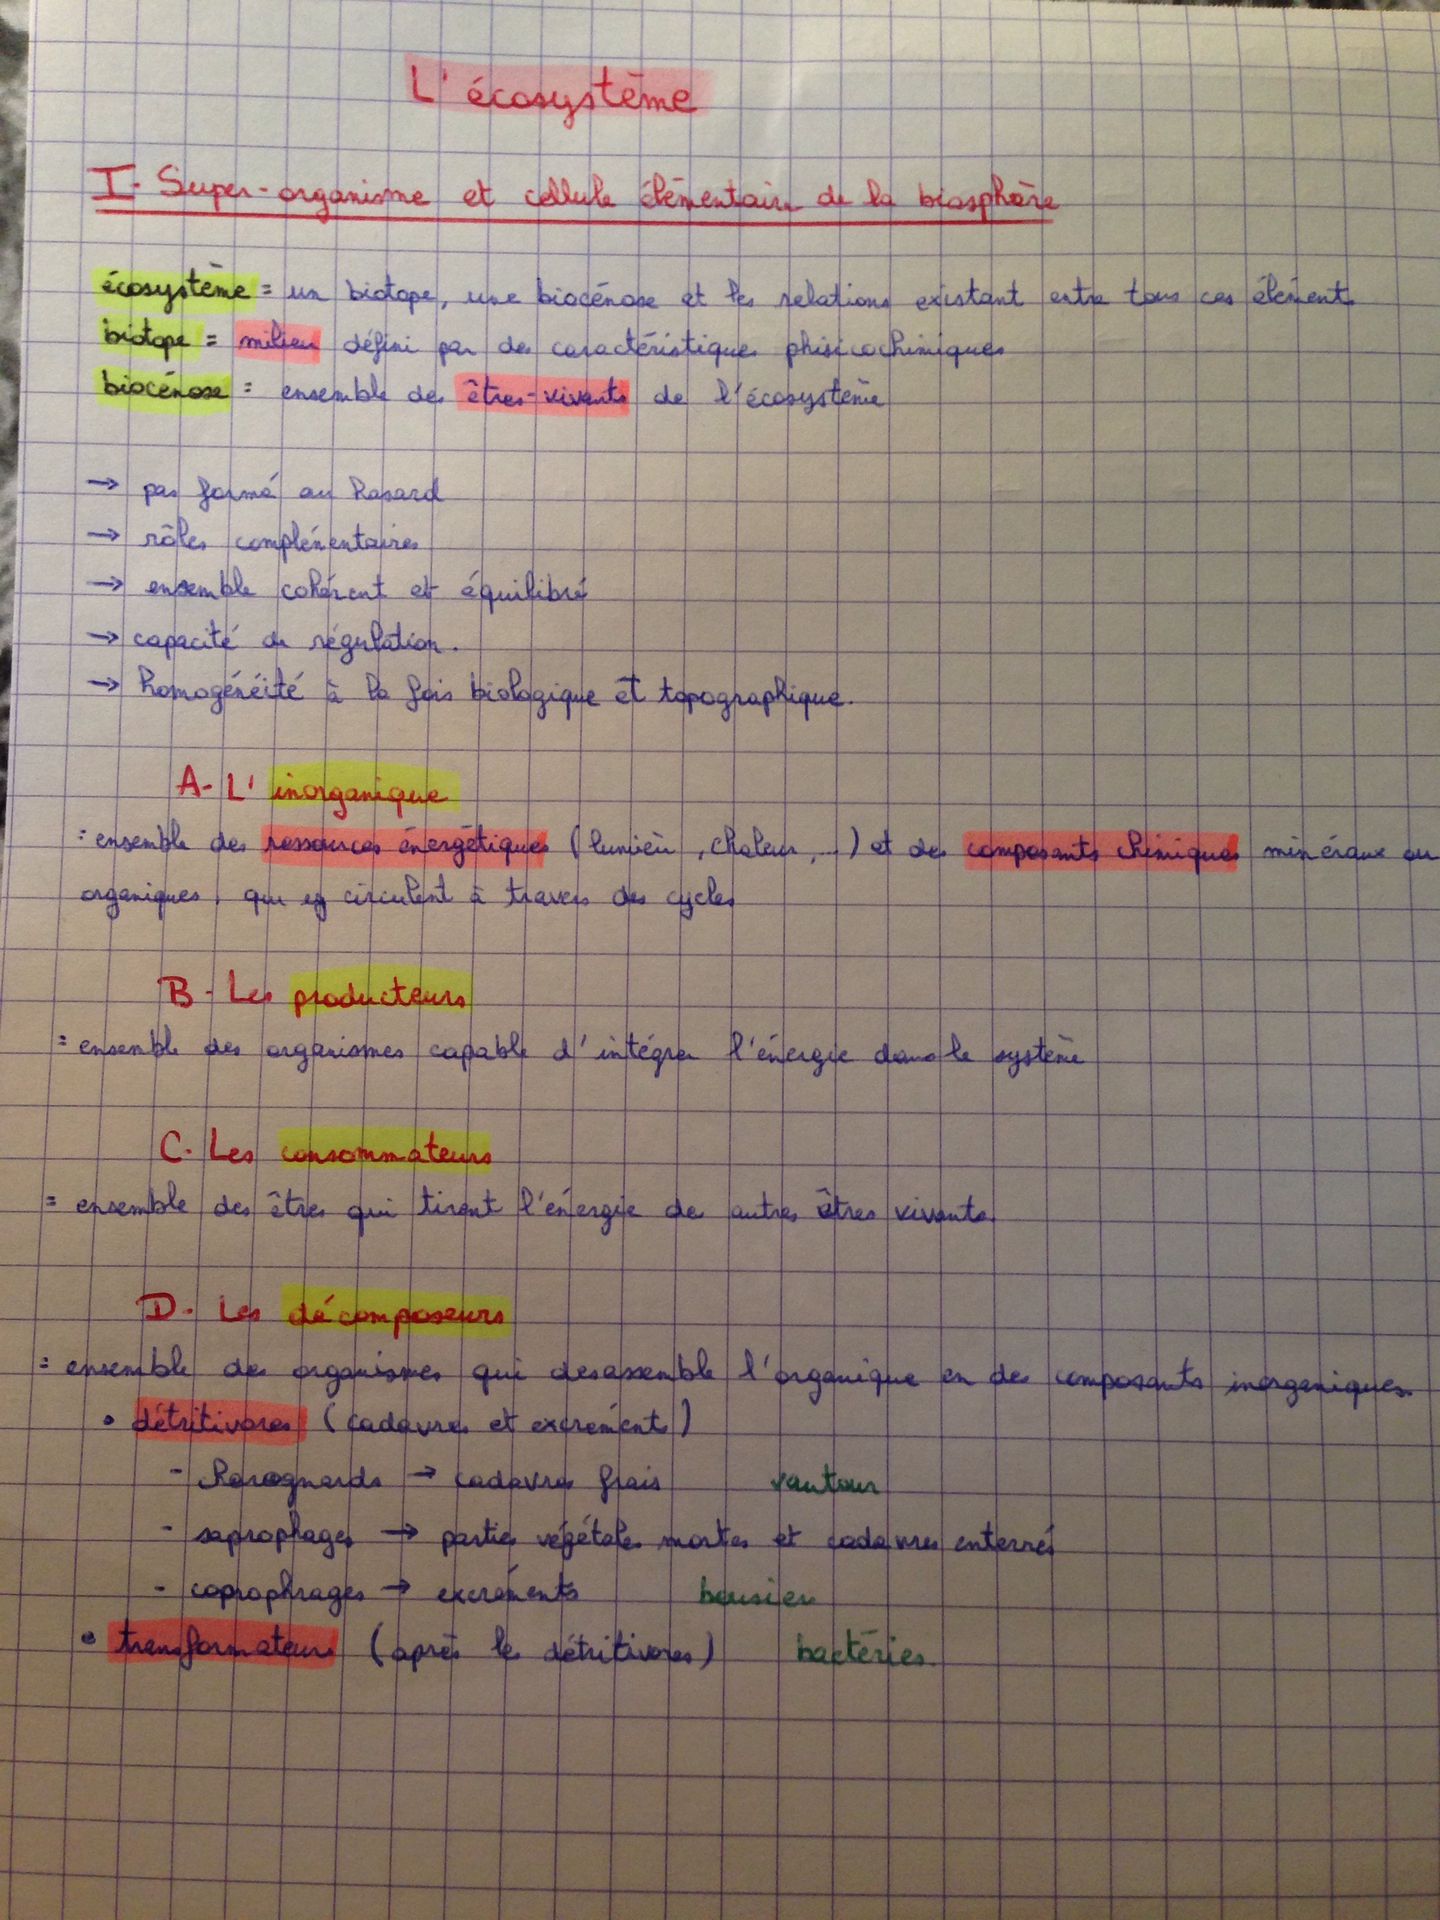 L'écosystème
I- Super-organisme et cellule élémentaire de la biosphère
écosystème = un biotope, une biocénose et les relations existant entre tous ces élément
biotope = milieu défini par des caractéristiques phisicochimiques
biocénose = ensemble des êtres-vivants de l'écosystème
→ pas formé au hasard
→ rôles complémentaires
→ ensemble cohérent et équilibré
→ capacité de régulation.
→ homogénéité à la fois biologique et topographique.
A- L'inorganique
= ensemble des ressources énergétiques (lumière, chaleur, ...) et des composants chimiques minéraux ou
organiques, qui circulent à travers des cycles
B- Les producteurs
= ensemble des organismes capable d'intégrer l'énergie dans le système
C- Les consommateurs
= ensemble des êtres qui tirent l'énergie de autres êtres vivants.
D- Les décomposeurs
= ensemble des organismes qui desassemble l'organique en des composants inorganiques.
• détritivores (cadavres et excrements)
- charognards → cadavres frais vautour
- saprophages → parties végétales mortes et cadavres enterrés
- coprophrages → excréments bousier
• transformateurs (après les détritivores) bactéries.